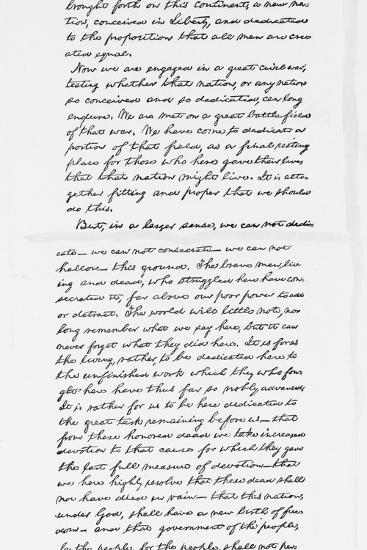 brought forth on this continent, a new na-
tion, conceived in Liberty, and dedicated
to the proposition that all men are cre-
ated equal.
Now we are engaged in a great civil war,
testing whether that nation, or any nation
so conceived and so dedicated, can long
endure. We are met on a great battle field
of that war. We have come to dedicate a
portion of that field, as a final resting
place for those who here gave their lives
that that nation might live. It is alto-
gether fitting and proper that we should
do this.
But, in a larger sense, we can not dedi-
cate — we can not consecrate — we can not
hallow — this ground. The brave men, liv-
ing and dead, who struggled here have con-
secrated it, far above our poor power to add
or detract. The world will little note, nor
long remember what we say here, but it can
never forget what they did here. It is for us
the living, rather, to be dedicated here to
the unfinished work which they who fou-
ght here have thus far so nobly advanced.
It is rather for us to be here dedicated to
the great task remaining before us — that
from these honored dead we take increased
devotion to that cause for which they gave
the last full measure of devotion — that
we here highly resolve that these dead shall
not have died in vain — that this nation,
under God, shall have a new birth of free-
dom — and that government of the people,
by the people, for the people, shall not per-